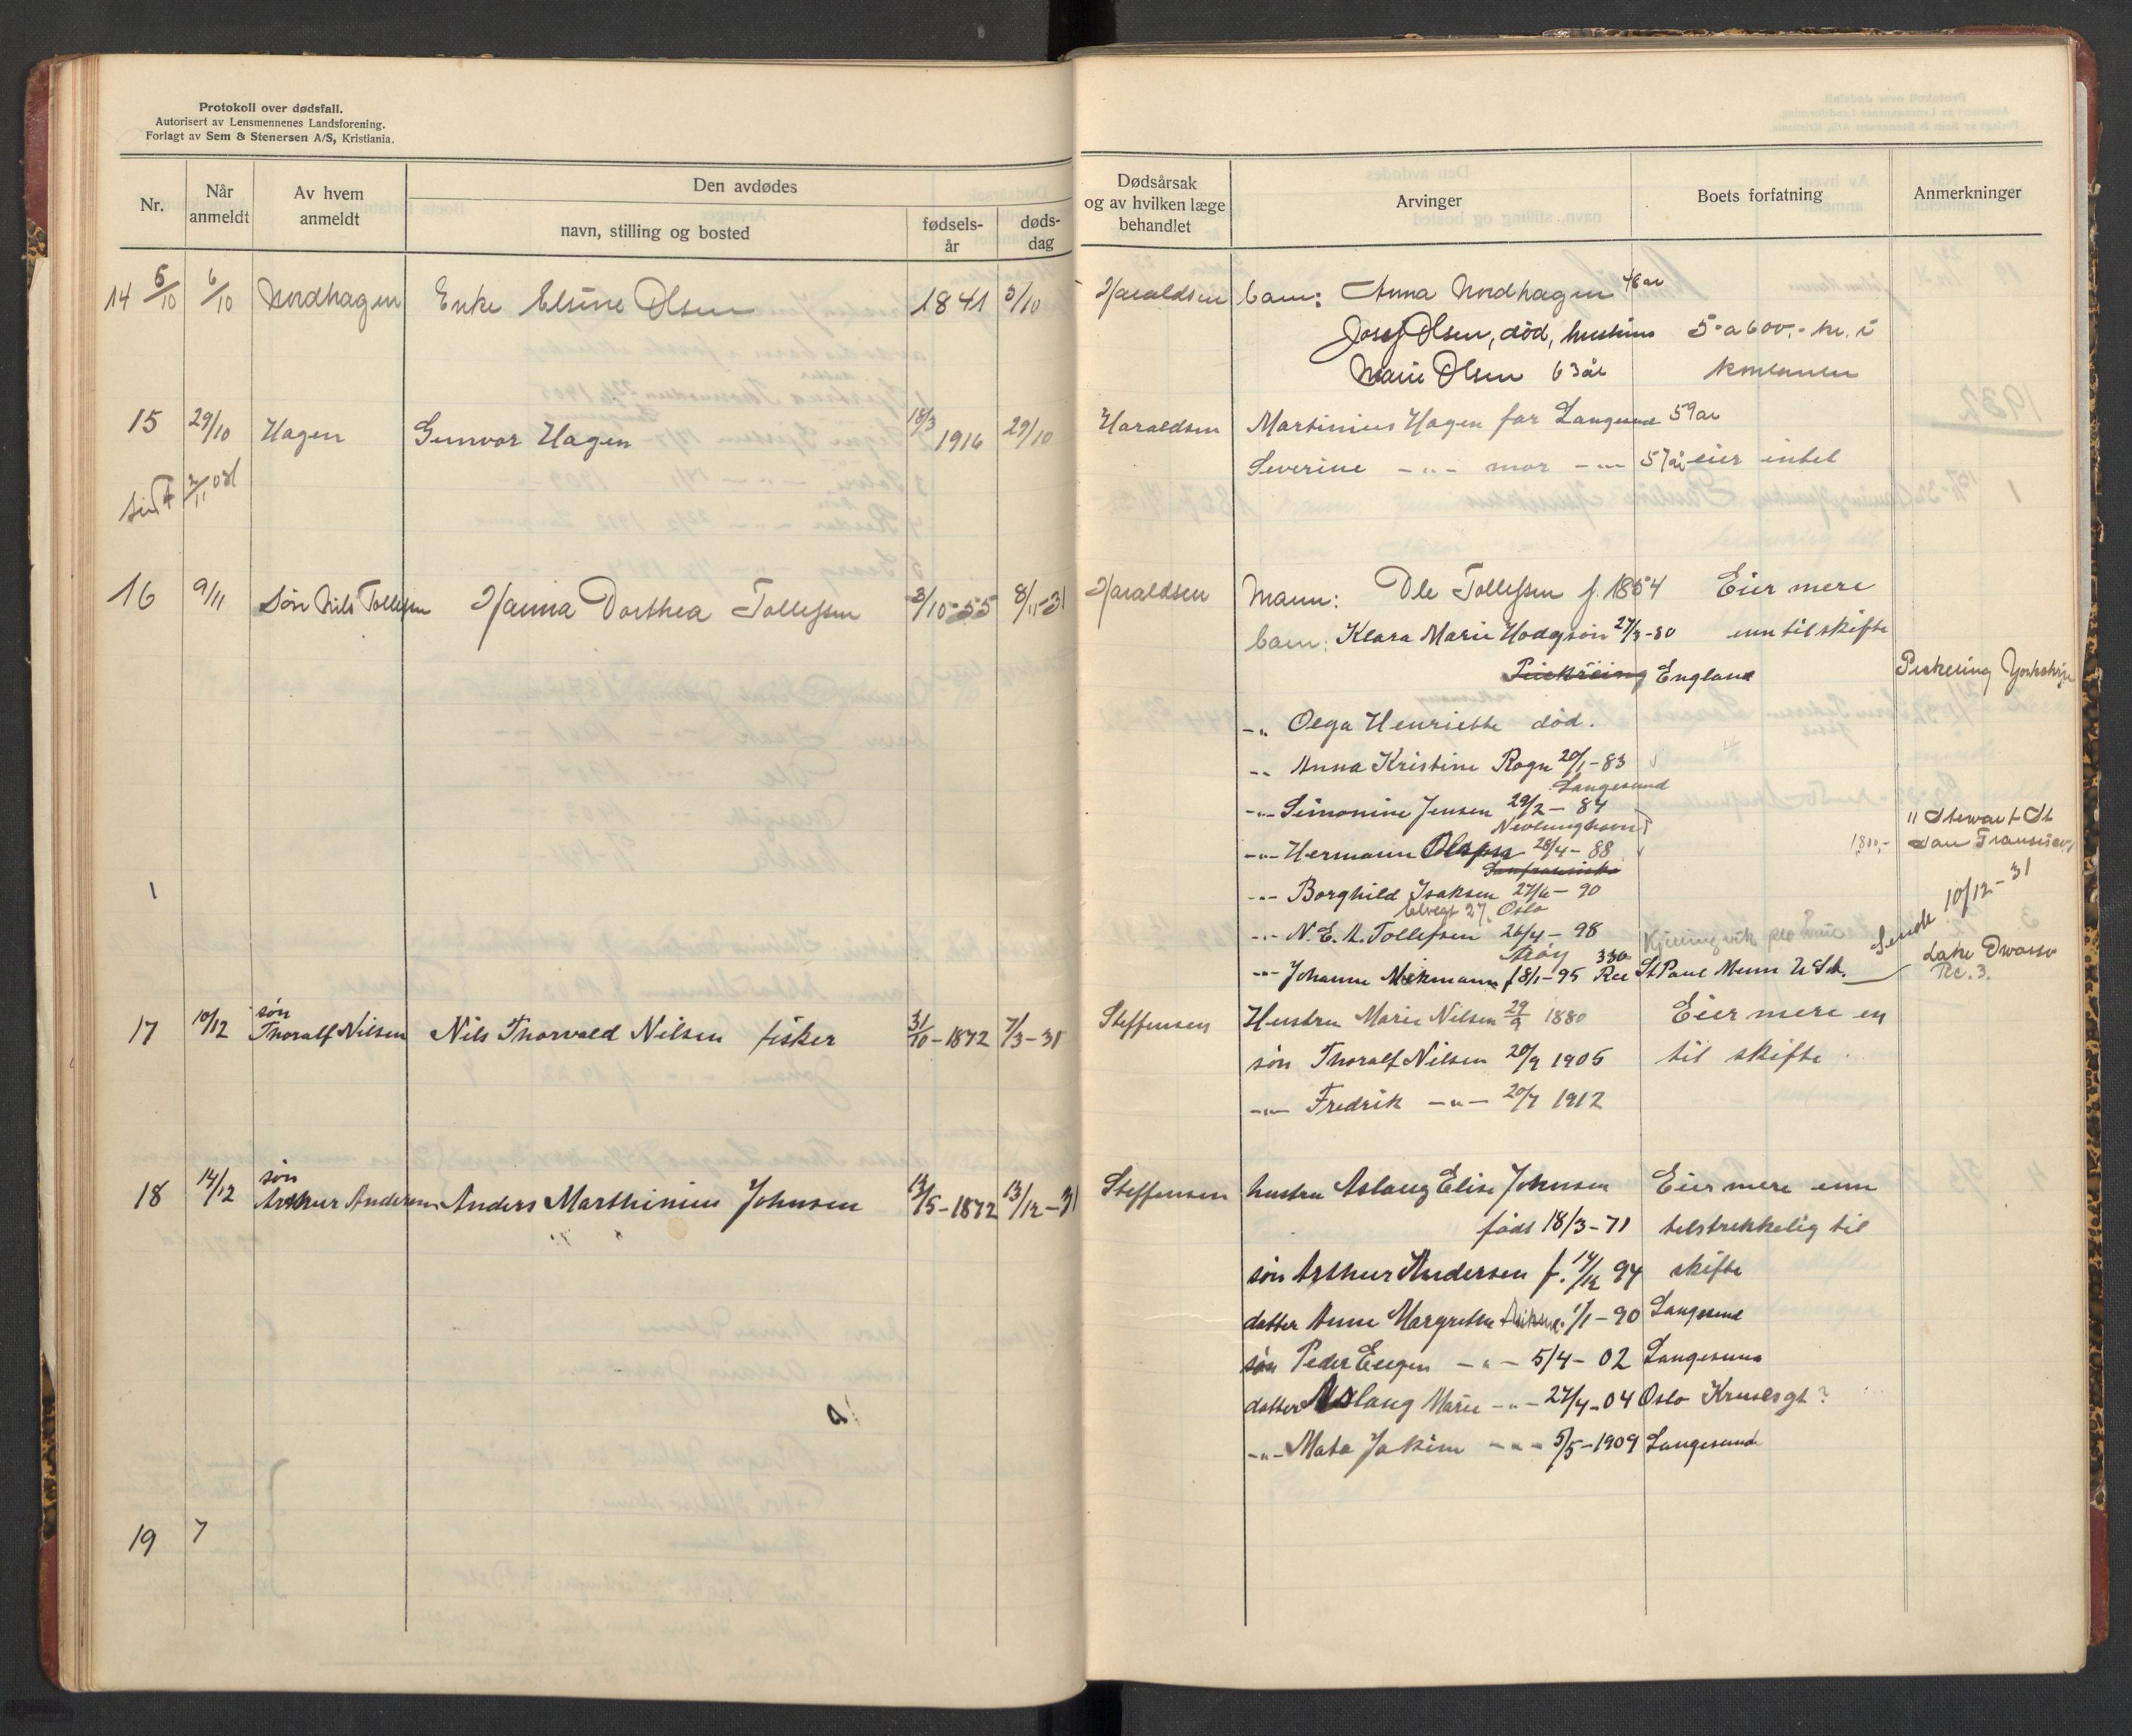 Protokoll over dødsfall.
Autorisert av Lensmennenes Landsforening.
Forlagt av Sem & Stenersen A/S, Kristiania.
Nr.
Når anmeldt
Av hvem anmeldt
Den avdødes
navn, stilling og bosted
fødsels-år
døds-dag
Dødsårsak og av hvilken læge behandlet
Arvinger
Boets forfatning
Anmerkninger
14 5/10 6/10 Nordhagen Enke Elsine Olsen 1841 5/10 Haraldsen barn: Anna Nordhagen 48 år
Josef Olsen, død, hustru 5 a 600,- kr. i
Marie Olsen 63 år
15 29/10 Hagen Gunvor Hagen 18/3 1916 29/10 Haraldsen Martinius Hagen far Langesund 59 år
Severine -"- mor -"- 57 år eier intet
2/11
16 9/11 Søn Nils Tollefsen Hanna Dorthea Tollefsen 3/10-55 8/11-31 Haraldsen Mann: Ole Tollefsen f. 1854 Eier mere
barn: Klara Marie Hodgson 27/3-80 enn til skifte
England Pickering Yorkshire
-"- Olga Henriette død.
-"- Anna Kristine Rogn 20/1-83
Langesund
-"- Simonine Jensen 29/2-84
Nevlunghavn
11 Stewart St
-"- Hermann 28/4-88 1800,- San Fransisco
Sanfransisko
-"- Borghild Isaksen 27/6-90
27, Oslo
-"- N. E. A. Tollefsen 26/4-98
Sendt 10/12-31
Troy 330
-"- Johanne f 8/1-95 Rcc St Paul Minn U.S.A. Lake Owasso
Rc. 3.
1
17 10/12 søn Thoralf Nilsen Nils Thorvald Nilsen fisker 31/10-1872 7/3-31 Steffensen Hustru Marie Nilsen 29/9 1880 Eier mere en
søn Thoralf Nilsen 20/9 1905 til skifte
-"- Fredrik -"- 20/7 1912
18 14/12 søn Arthur Andersen Anders Marthinius Johnsen 12/5-1872 13/12-31 Steffensen hustru Aslaug Elise Johnsen Eier mere enn
født 18/3-71 tilstrekkelig til
søn Arthur Andersen f. 14/12 94 skifte
datter Anne Margrethe 1/1-90 Langesund
søn Peder Eugen -"- 5/4-02 Langesund
datter Aslaug Marie -"- 27/4-04 Oslo Krusesgt?
-"- Mata Jakim -"- 5/5-1909 Langesund
19 7